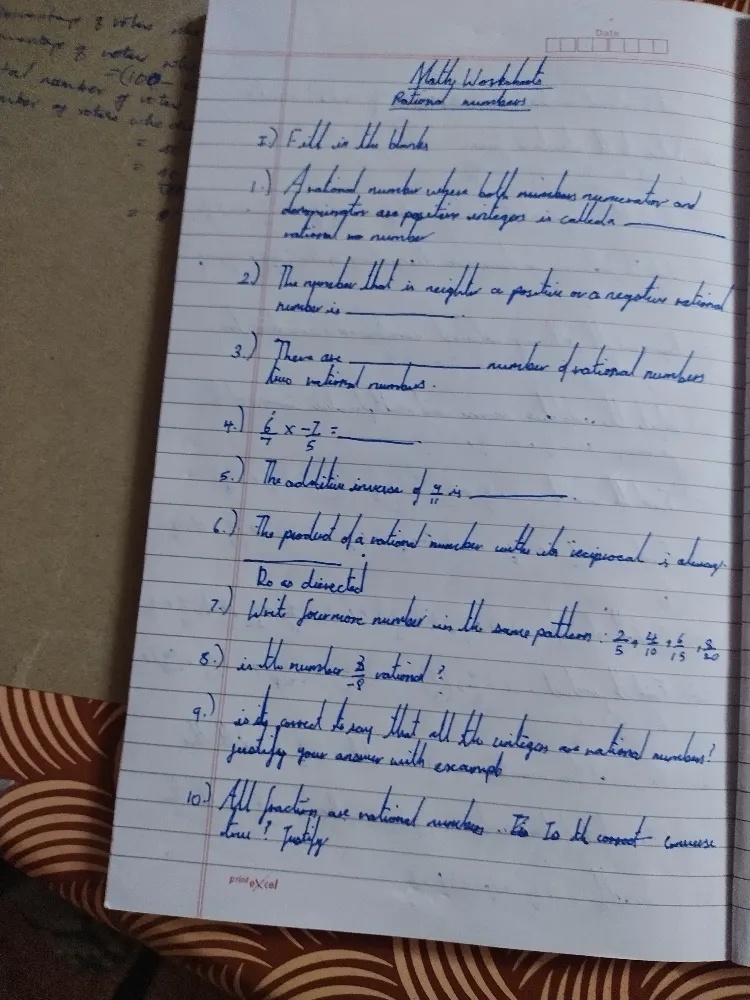 Date
Maths Worksheets
Rational numbers
I) Fill in the blanks
1.) A rational number where both numbers numerator and
denominator are positive integers is called a ________
rational no number
2.) The number that is neighter a positive or a negative rational
number is ________.
3.) There are ________ number of rational numbers
two rational numbers.
4.) 6/7 x -7/5 = ________.
5.) The additive inverse of 9/11 is ________.
6.) The product of a rational number with its reciprocal is always
________.
Do as directed
7.) Write four more number in the same pattern : 2/5, 4/10, 6/15, 8/20
8.) is the number 3/-8 rational ?
9.) is it correct to say that all the integers are rational numbers?
justify your answer with example
10.) All fractions are rational numbers. Is th correct converse
true ? Justify
print excel
percentage of voters
percentage of voters who
=(100
number of voters
number of voters who
=
=
=